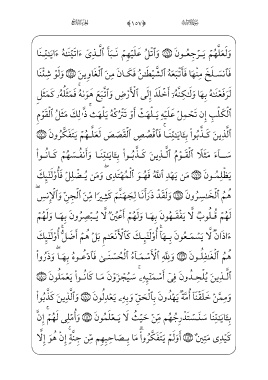 (١٥٧)
وَلَعَلَّهُمْ يَرْجِعُونَ وَاتْلُ عَلَيْهِمْ نَبَأَ الَّذِي ءَاتَيْنَٰهُ ءَايَٰتِنَا
فَانسَلَخَ مِنْهَا فَأَتْبَعَهُ الشَّيْطَٰنُ فَكَانَ مِنَ الْغَاوِينَ وَلَوْ شِئْنَا
لَرَفَعْنَٰهُ بِهَا وَلَٰكِنَّهُۥ أَخْلَدَ إِلَى الْأَرْضِ وَاتَّبَعَ هَوَىٰهُ فَمَثَلُهُۥ كَمَثَلِ
الْكَلْبِ إِن تَحْمِلْ عَلَيْهِ يَلْهَثْ أَوْ تَتْرُكْهُ يَلْهَث ذَّٰلِكَ مَثَلُ الْقَوْمِ
الَّذِينَ كَذَّبُوا۟ بِـَٔايَٰتِنَا فَاقْصُصِ الْقَصَصَ لَعَلَّهُمْ يَتَفَكَّرُونَ
سَآءَ مَثَلًا الْقَوْمُ الَّذِينَ كَذَّبُوا۟ بِـَٔايَٰتِنَا وَأَنفُسَهُمْ كَانُوا۟
يَظْلِمُونَ مَن يَهْدِ اللَّهُ فَهُوَ الْمُهْتَدِي وَمَن يُضْلِلْ فَأُو۟لَٰٓئِكَ
هُمُ الْخَٰسِرُونَ وَلَقَدْ ذَرَأْنَا لِجَهَنَّمَ كَثِيرًا مِّنَ الْجِنِّ وَالْإِنسِ
لَهُمْ قُلُوبٌ لَّا يَفْقَهُونَ بِهَا وَلَهُمْ أَعْيُنٌ لَّا يُبْصِرُونَ بِهَا وَلَهُمْ
ءَاذَانٌ لَّا يَسْمَعُونَ بِهَآ أُو۟لَٰٓئِكَ كَالْأَنْعَٰمِ بَلْ هُمْ أَضَلُّ أُو۟لَٰٓئِكَ
هُمُ الْغَٰفِلُونَ وَلِلَّهِ الْأَسْمَآءُ الْحُسْنَىٰ فَادْعُوهُ بِهَا وَذَرُوا۟
الَّذِينَ يُلْحِدُونَ فِيٓ أَسْمَٰٓئِهِۦ سَيُجْزَوْنَ مَا كَانُوا۟ يَعْمَلُونَ
وَمِمَّنْ خَلَقْنَآ أُمَّةٌ يَهْدُونَ بِالْحَقِّ وَبِهِۦ يَعْدِلُونَ وَالَّذِينَ كَذَّبُوا۟
بِـَٔايَٰتِنَا سَنَسْتَدْرِجُهُم مِّنْ حَيْثُ لَا يَعْلَمُونَ وَأُمْلِي لَهُمْ إِنَّ
كَيْدِي مَتِينٌ أَوَلَمْ يَتَفَكَّرُوا۟ مَا بِصَاحِبِهِم مِّن جِنَّةٍ إِنْ هُوَ إِلَّا